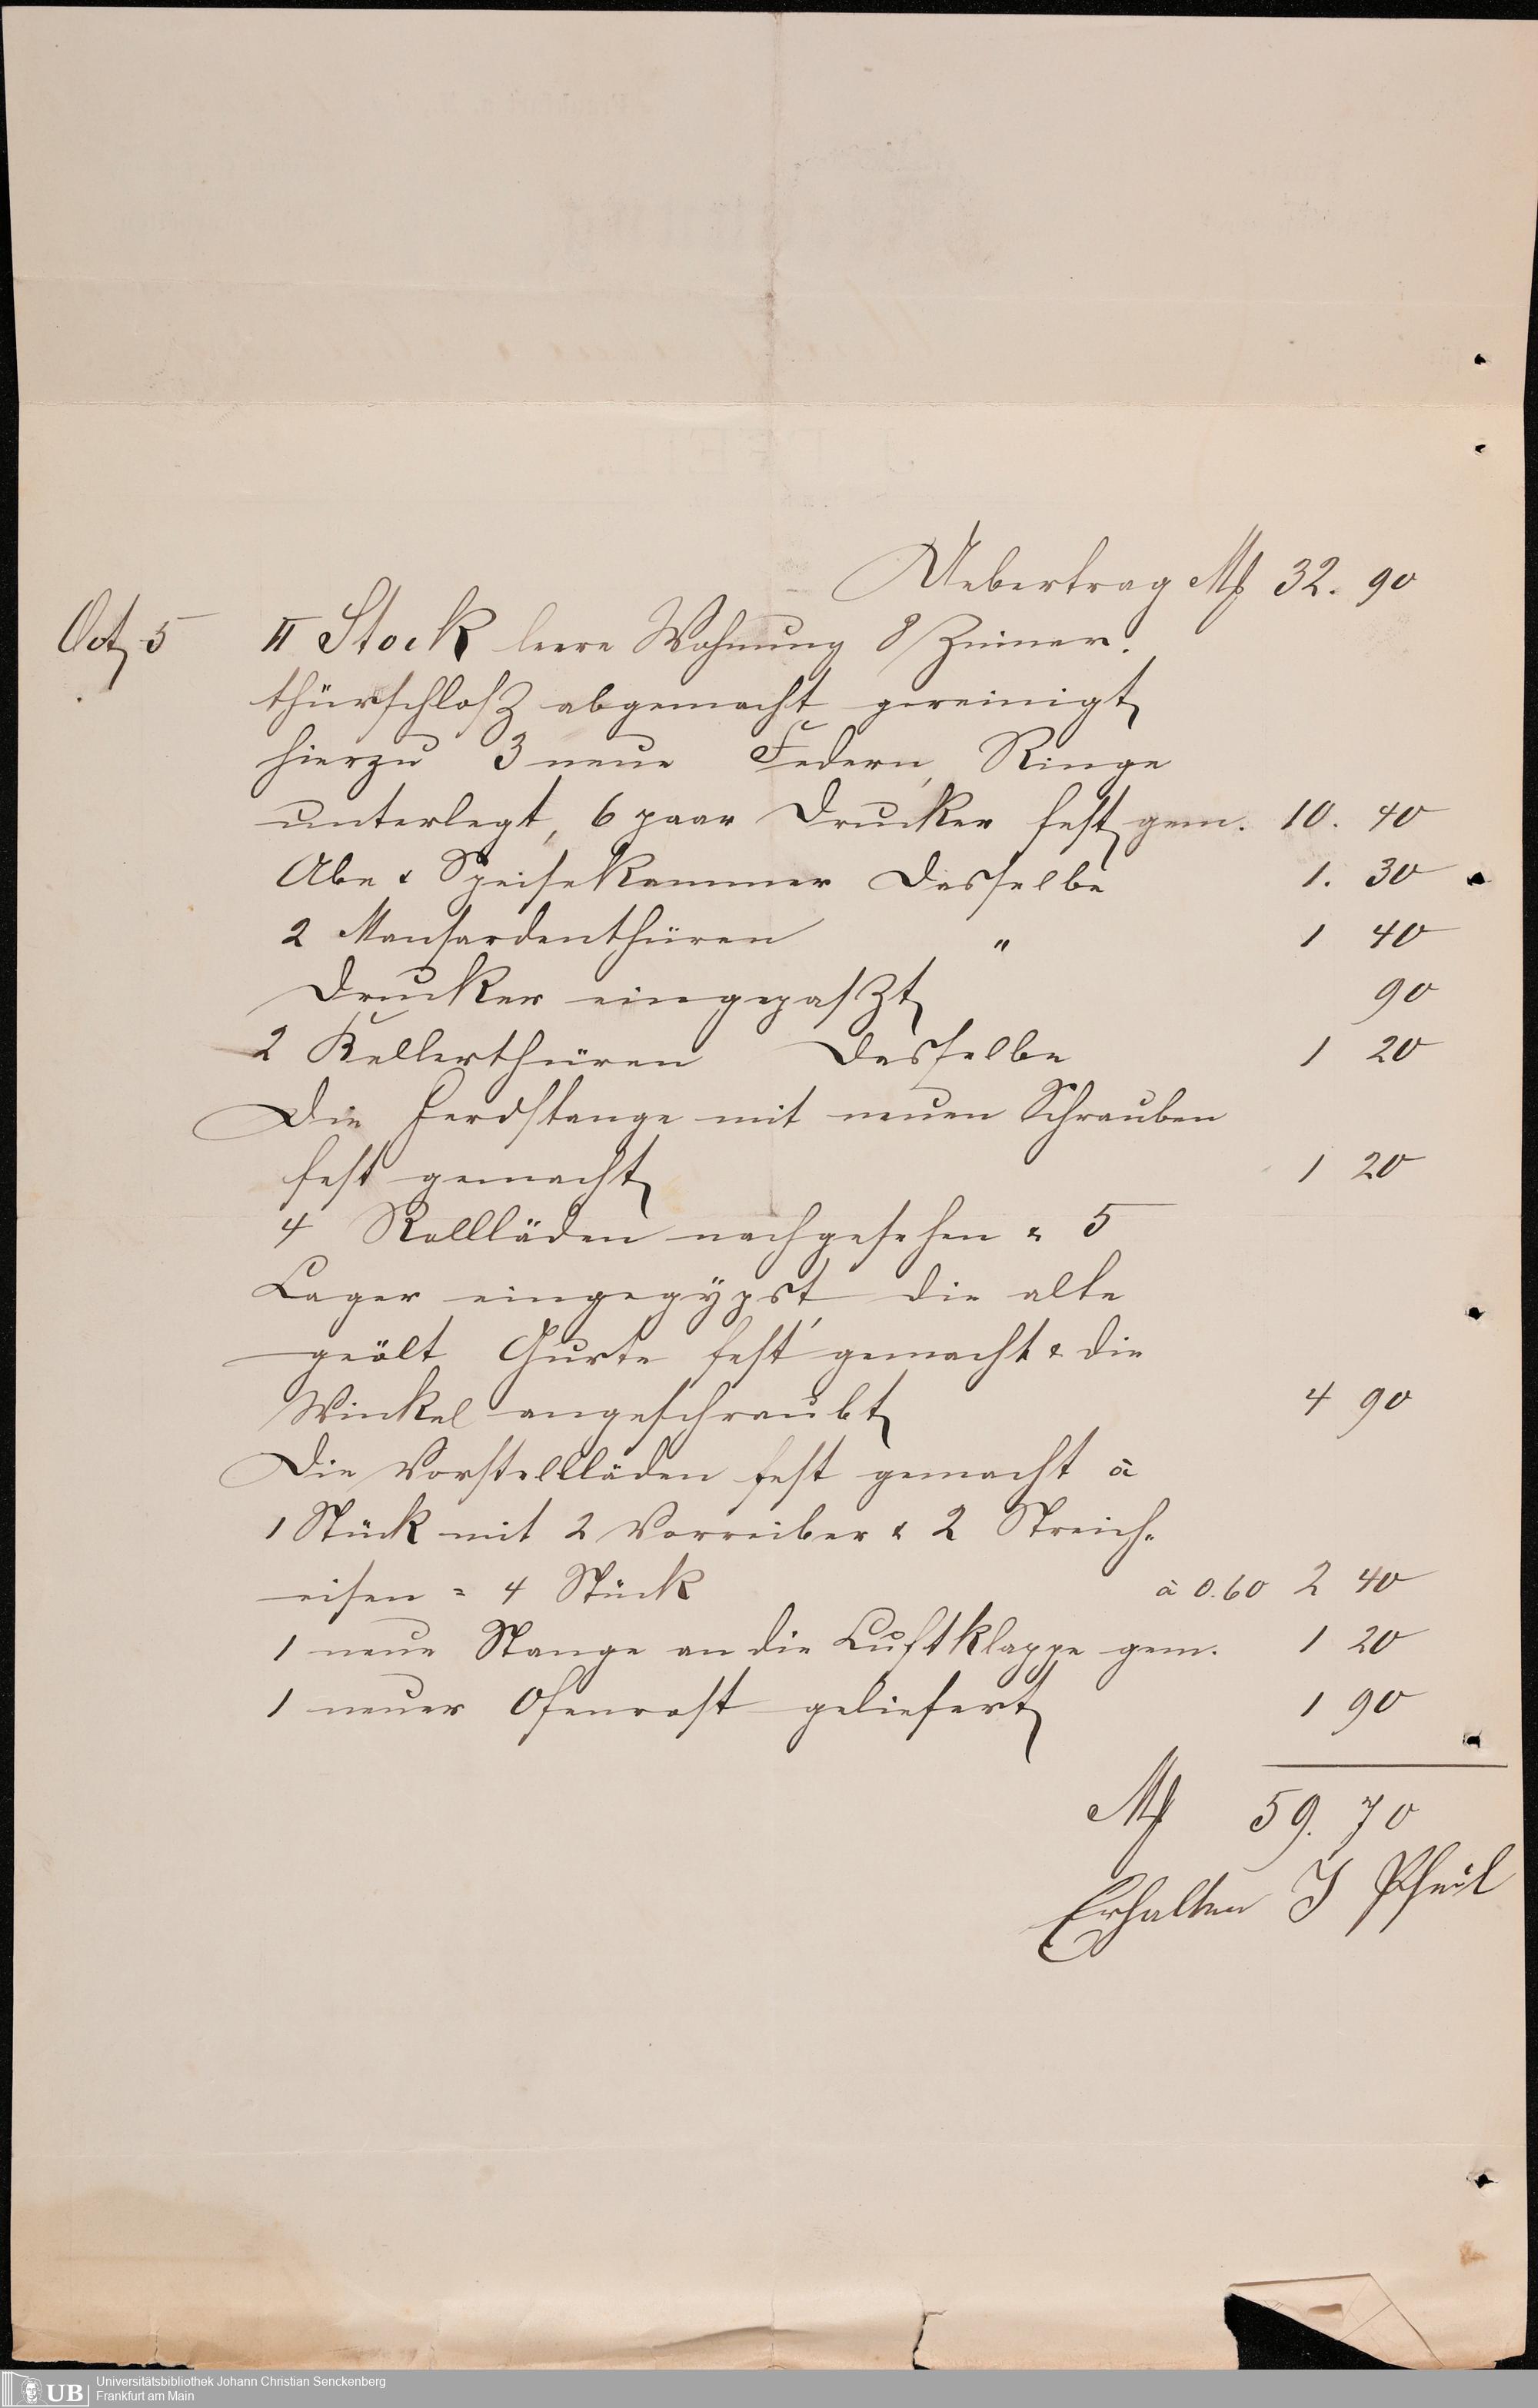 Uebertrag Mk 32. 90
Oct 5 II Stock leere Wohnung 8 Zimmer.
thürschloß abgemacht gereinigt
hierzu 3 neue Federn, Ringe
unterlegt, 6 paar Drucker fest gem. 10. 40
Abe & Speisekammer Desselbe 1. 30
2 Mansardenthüren " 1 40
Drucker eingepaßt 90
2 Kellerthüren Desselbe 1 20
Die Herdstange mit neuen Schrauben
fest gemacht 1 20
4 Rollläden nachgesehen & 5
Lager eingegÿpst die alte
geölt Gurte fest gemacht & die
Winkel angeschraubt 4 90
Die Vorstellläden fest gemacht à
1 Stück mit 2 Vorreiber & 2 Streich-
eisen = 4 Stück à 0.60 2 40
1 neue Stange an die Luftklappe gem. 1 20
1 neuer Ofenrost geliefert 1 90
Mk 59. 70
Erhalten J Pfeil
UB Universitätsbibliothek Johann Christian Senckenberg
Frankfurt am Main